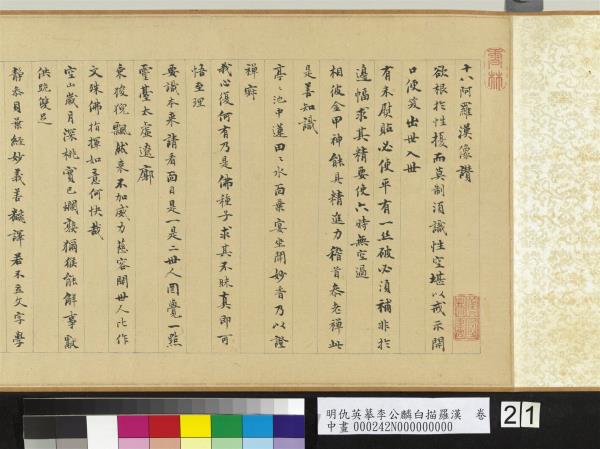 十八阿羅漢像讚
欲根於性擾而莫制須識性空堪以戒示開
口便笑出世入世
有未慰貼必使平有一絲破必須補非於
邊幅求其精要使六時無空過
相彼金甲神能具精進力稽首泰老禪此
是善知識
亭亭池中蓮田田水面葉宴坐開妙香乃以證
禪寂
我心復何有乃是佛種子求其不昧真即可
悟至理
要識本來請看面目是一是二世人圓覺一點
靈臺太虛遼廓
東狻猊飄然來不加威力慈容開世人比作
文殊佛指揮如意何快哉
空山歲月深桃實已爛熟獼猴能解事獻
供跪雙足
靜參貝葉經妙義善翻譯若不立文字學
雲林
明仇英摹李公麟白描羅漢 卷
中畫000242N000000000
21